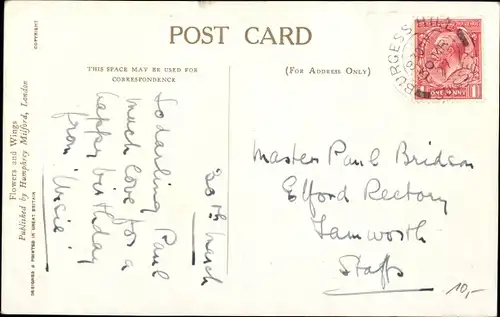 POST CARD
COPYRIGHT
THIS SPACE MAY BE USED FOR
CORRESPONDENCE
(FOR ADDRESS ONLY)
Flowers and Wings
Published by Humphrey Milford, London
DESIGNED & PRINTED IN GREAT BRITAIN
30th March
To darling Paul
much love for a
happy birthday
from
Master Paul Bridson
Elford Rectory
Tamworth
Staffs
10,-
BURGESS HILL
ONE PENNY